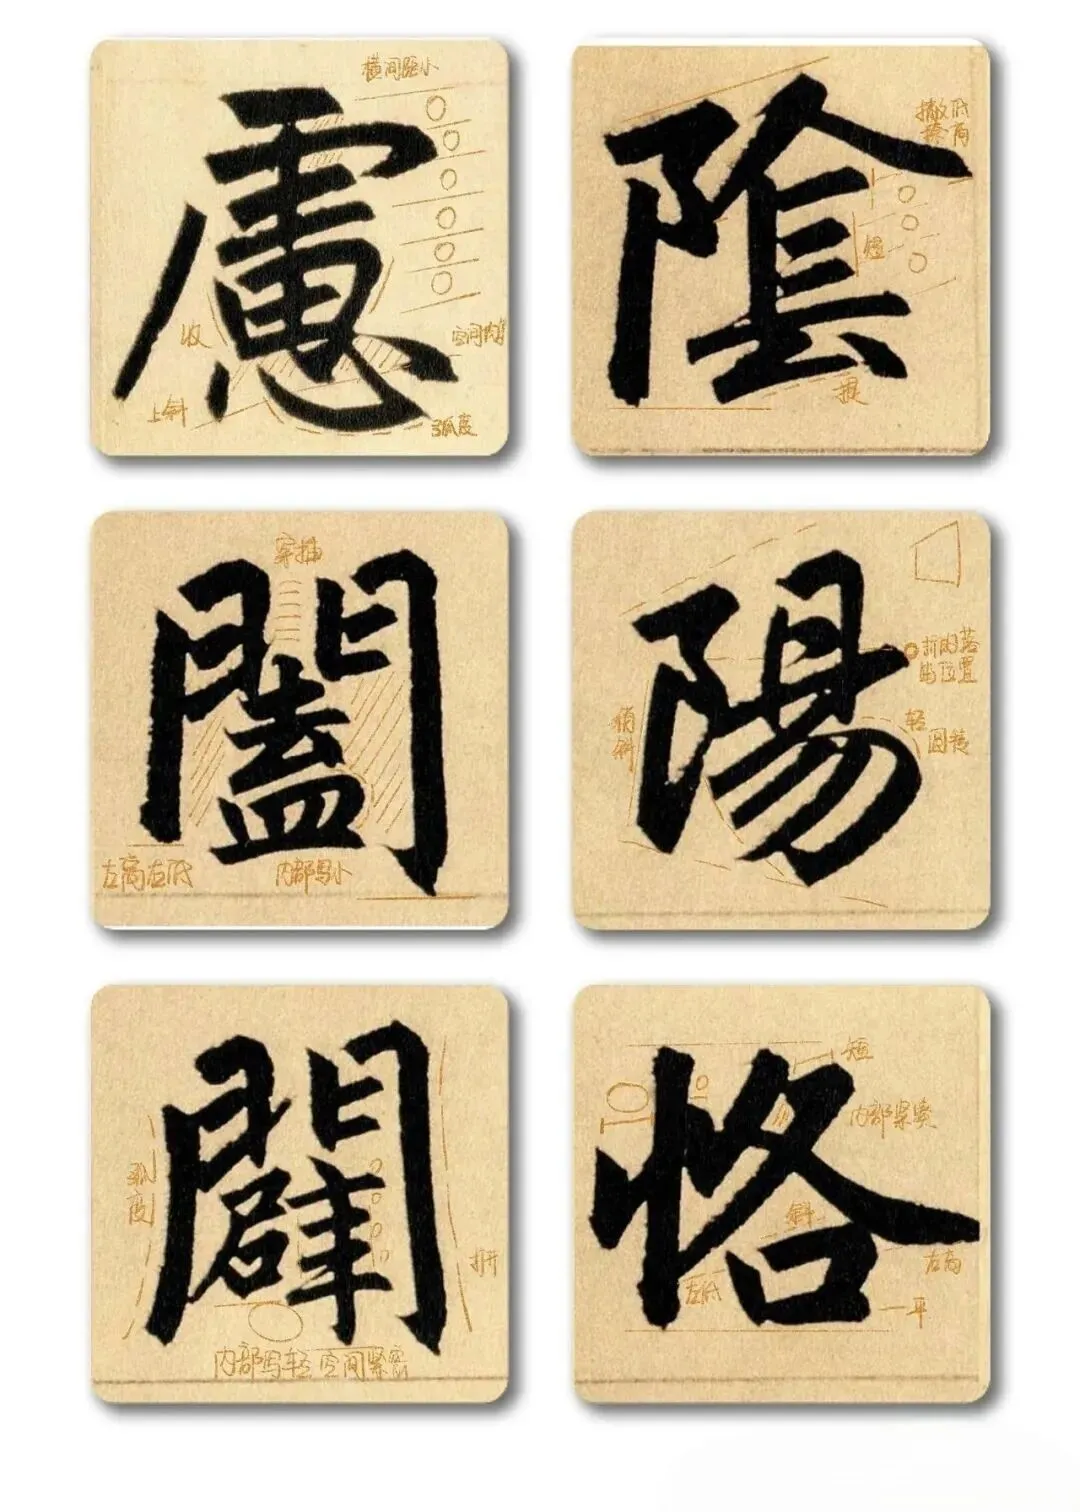 慮
横间距小
收
上斜
弧度
隂
撇低
捺高
短
提
闔
穿插
左高右低
内部写小
陽
稍斜
轻
圆转
闢
弧度
内部写轻 空间紧密
恪
短
内部紧实
斜
左低
右高
平